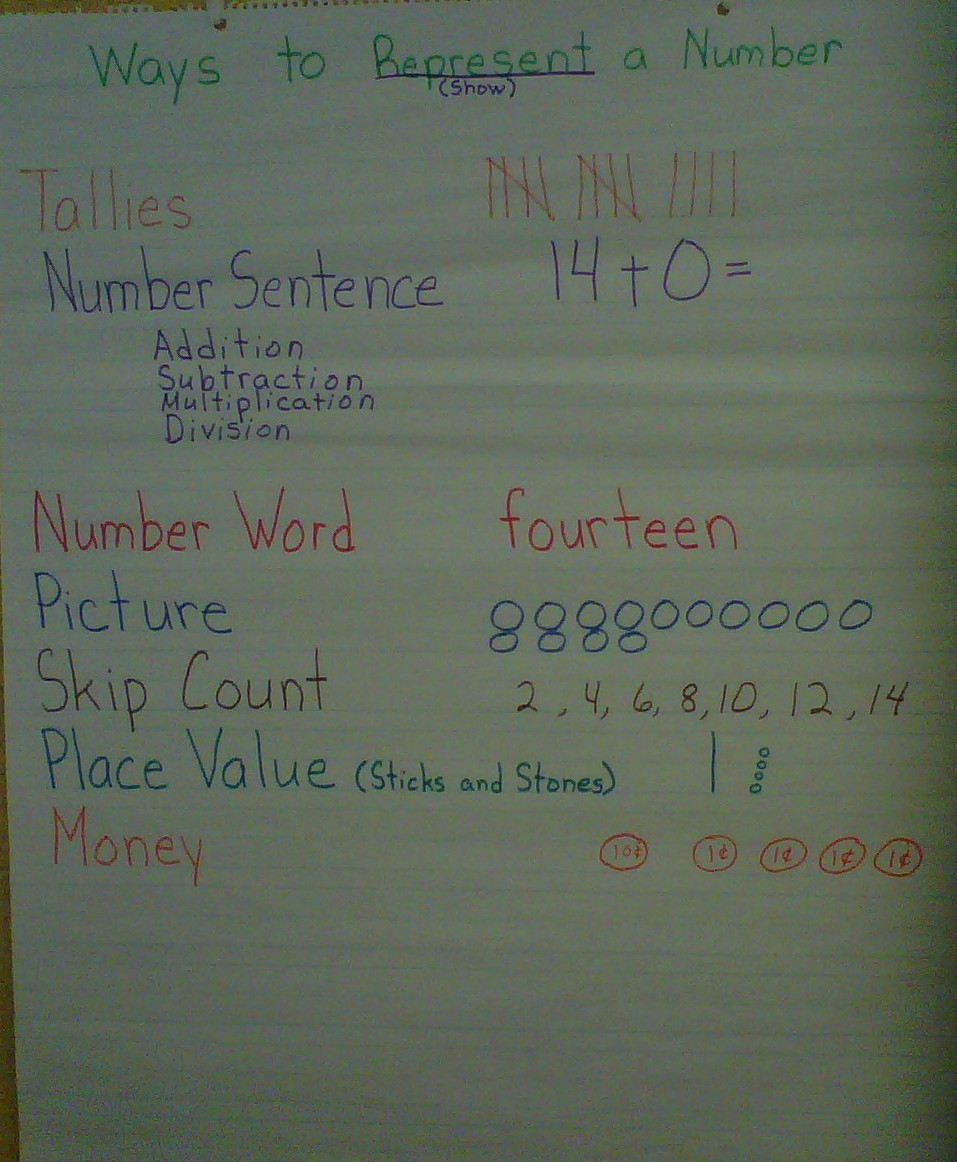 Ways to Represent a Number
(Show)
Tallies
Number Sentence 14 + 0 =
Addition
Subtraction
Multiplication
Division
Number Word fourteen
Picture
Skip Count 2, 4, 6, 8, 10, 12, 14
Place Value (Sticks and Stones)
Money 10¢ 1¢ 1¢ 1¢ 1¢